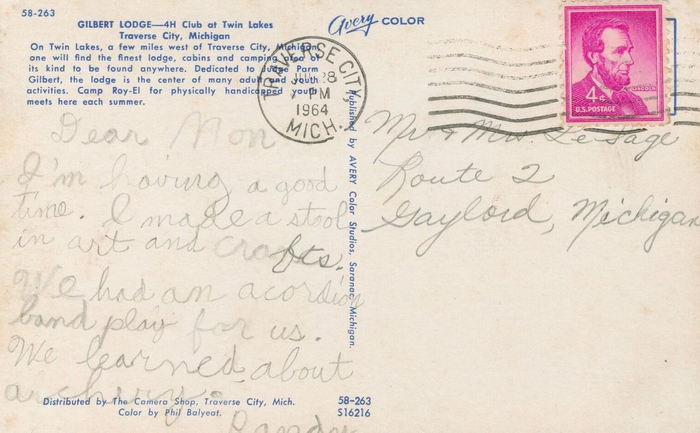 58-263
GILBERT LODGE—4H Club at Twin Lakes
Traverse City, Michigan
On Twin Lakes, a few miles west of Traverse City, Michigan,
one will find the finest lodge, cabins and camping area of
its kind to be found anywhere. Dedicated to Parm
Gilbert, the lodge is the center of many adult and youth
activities. Camp Roy-El for physically handicapped youth
meets here each summer.
Avery COLOR
TRAVERSE CITY
28
PM
1964
MICH.
LINCOLN
4¢
U.S. POSTAGE
Published by AVERY Color Studios, Saranac, Michigan.
Dear Mon
I'm having a good
time. I made a stool
in art and crafts.
We had an acordion
band play for us.
We learned about
archery.
Randy
Mr & Mrs. Le Sage
Route 2
Gaylord, Michigan
Distributed by The Camera Shop, Traverse City, Mich.
Color by Phil Balyeat.
58-263
S16216